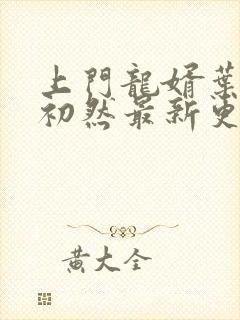 上門龍婿葉
初然最新更
黃大全